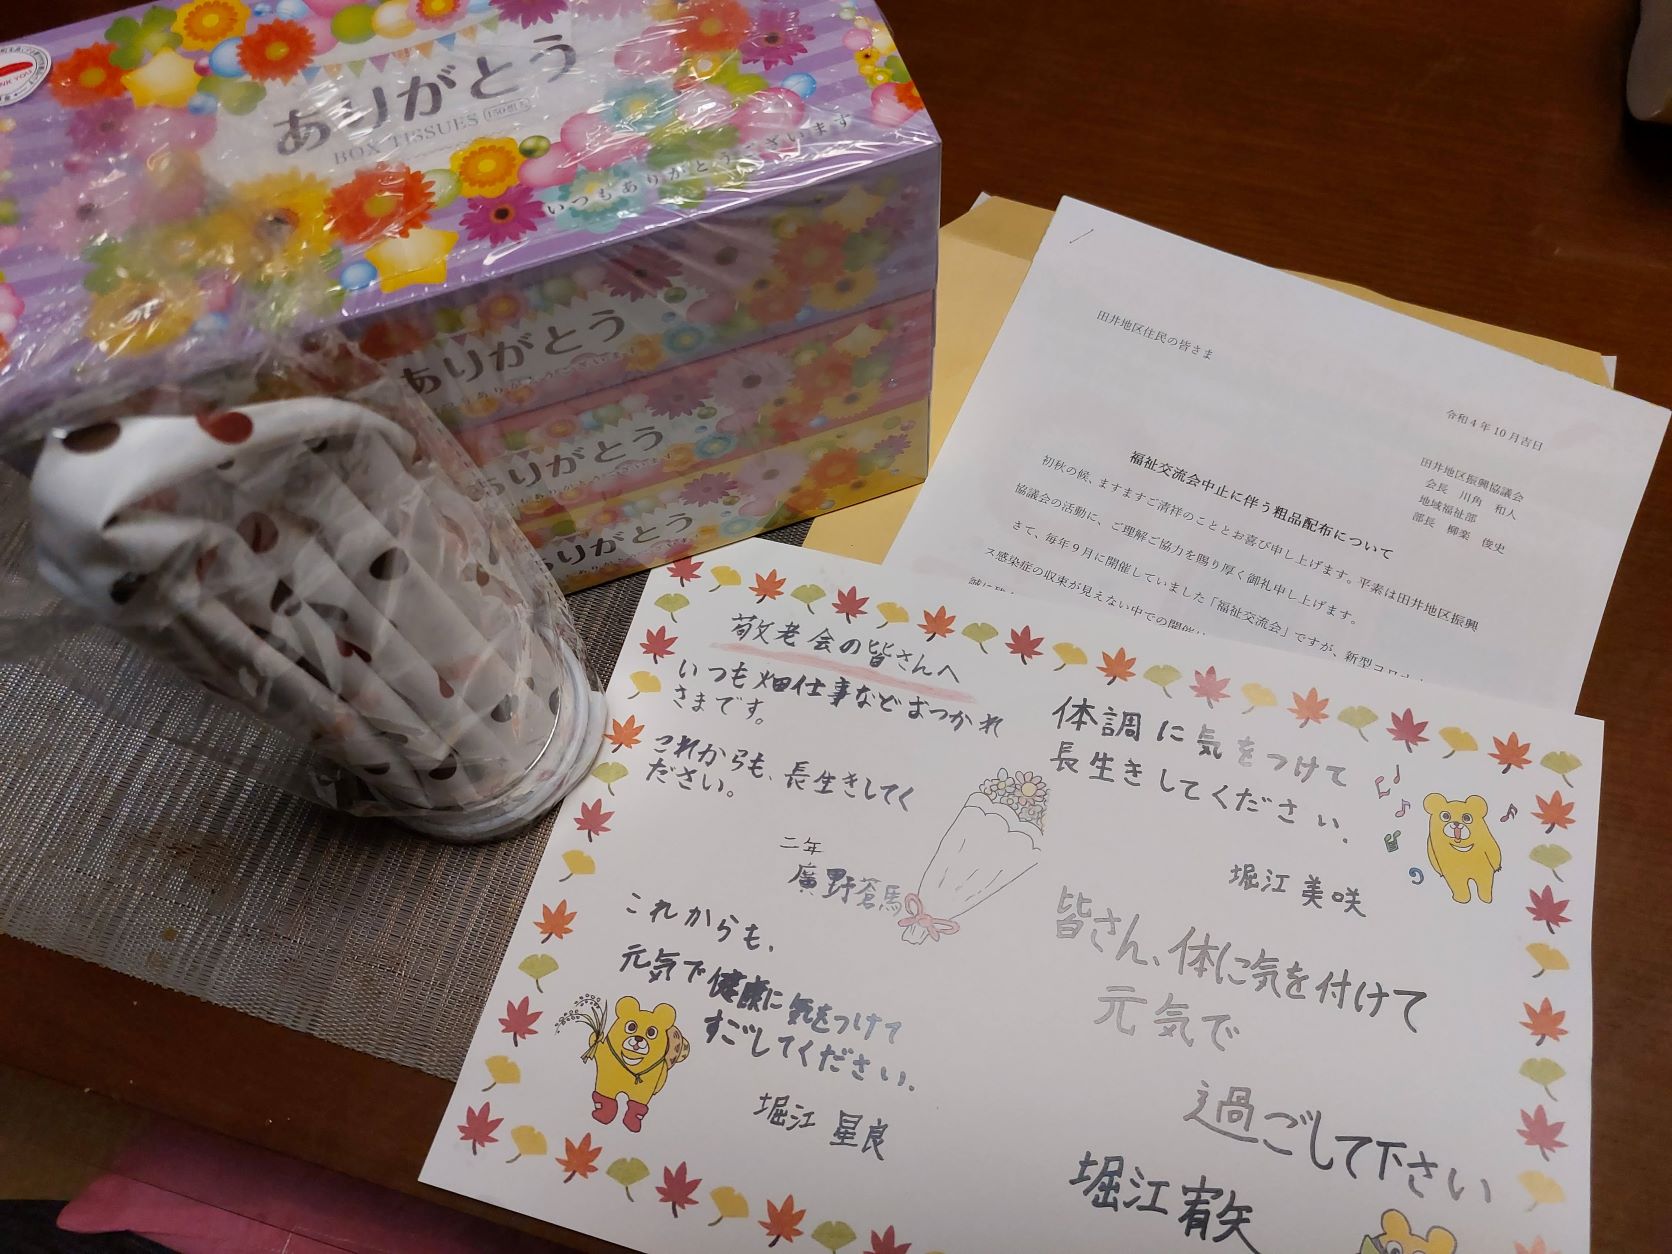 ありがとう
BOX TISSUES 150組
いつもありがとうございます
ありがとう
ありがとう
ありがとう
田井地区住民の皆さま
令和4年10月吉日
田井地区振興協議会
会長 川角 和人
地域福祉部
部長 楫楽 俊史
福祉交流会中止に伴う粗品配布について
初秋の候、ますますご清祥のこととお喜び申し上げます。平素は田井地区振興
協議会の活動に、ご理解ご協力を賜り厚く御礼申し上げます。
さて、毎年9月に開催していました「福祉交流会」ですが、新型コロナ
ス感染症の収束が見えない中での開催は
敬老会の皆さんへ
いつも畑仕事などおつかれ
さまです。
これからも、長生きしてく
ださい。
二年
廣野蒼馬
これからも、
元気で健康に気をつけて
すごしてください。
堀江 星良
体調に気をつけて
長生きしてください。
堀江 美咲
皆さん、体に気を付けて
元気で
過ごして下さい
堀江宥矢